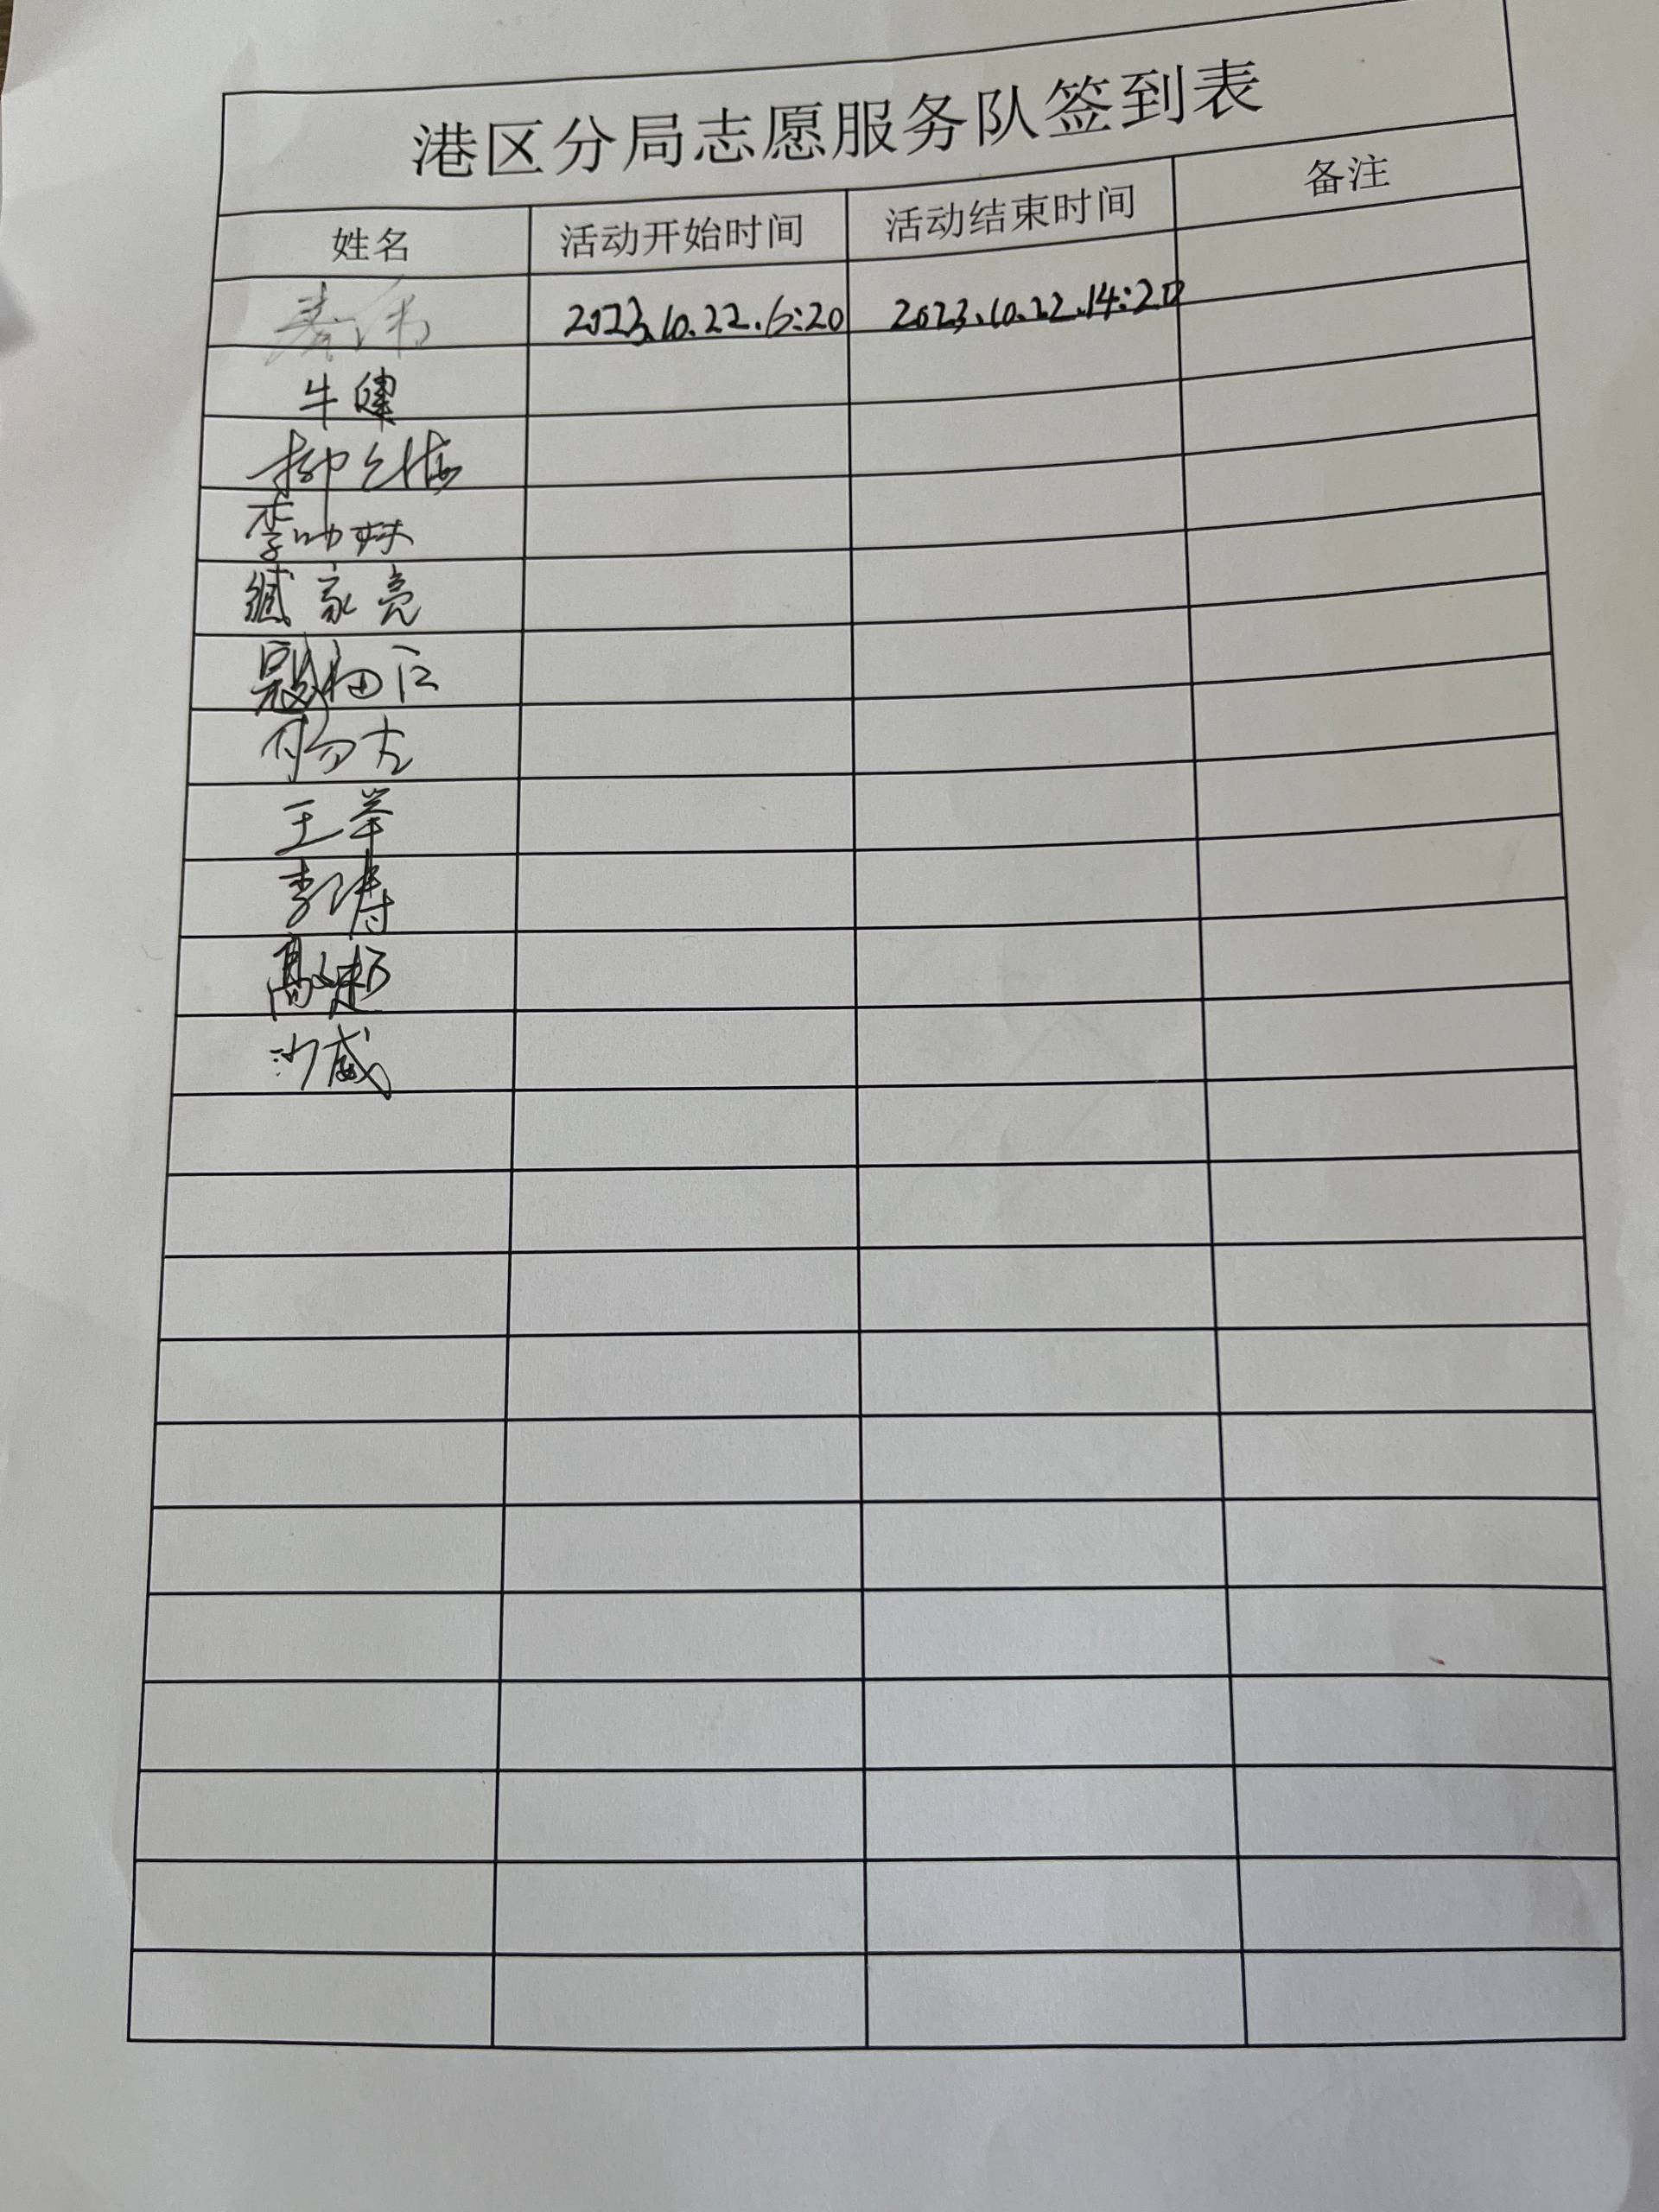 港区分局志愿服务队签到表
姓名 活动开始时间 活动结束时间 备注
秦伟 2023.10.22.6:20 2023.10.22.14:20
牛健
柳
李帅
臧家亮
寇
杨
王举
李涛
高超
沙威